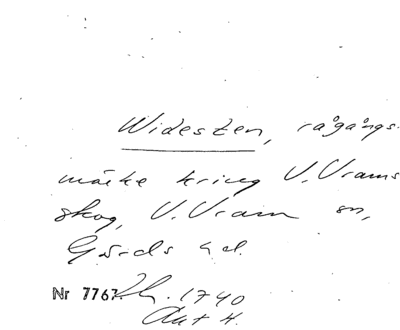 Widesten, rågångs-
märke kring V. Vrams
skog, V. Vram sn,
Gärds hd.
Nr 7767 Lh. 1740
Akt H.